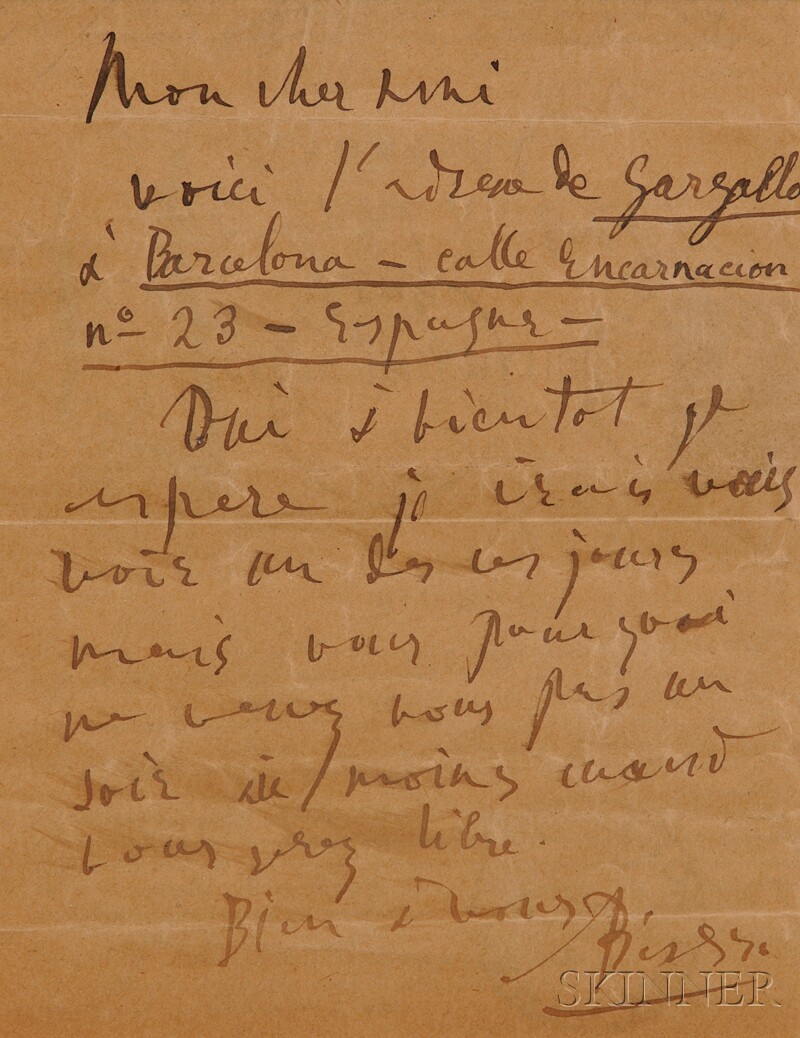 Mon cher ami
voici l'adresse de Gargallo
à Barcelona – calle Encarnacion
nº 23 – Espagne –
Oui à bientot je
espere je irais vous
voir un des ces jours
mais vous pourquoi
ne venez vous pas un
soir au moins quand
vous serez libre.
Bien à vous
Picasso
SKINNER